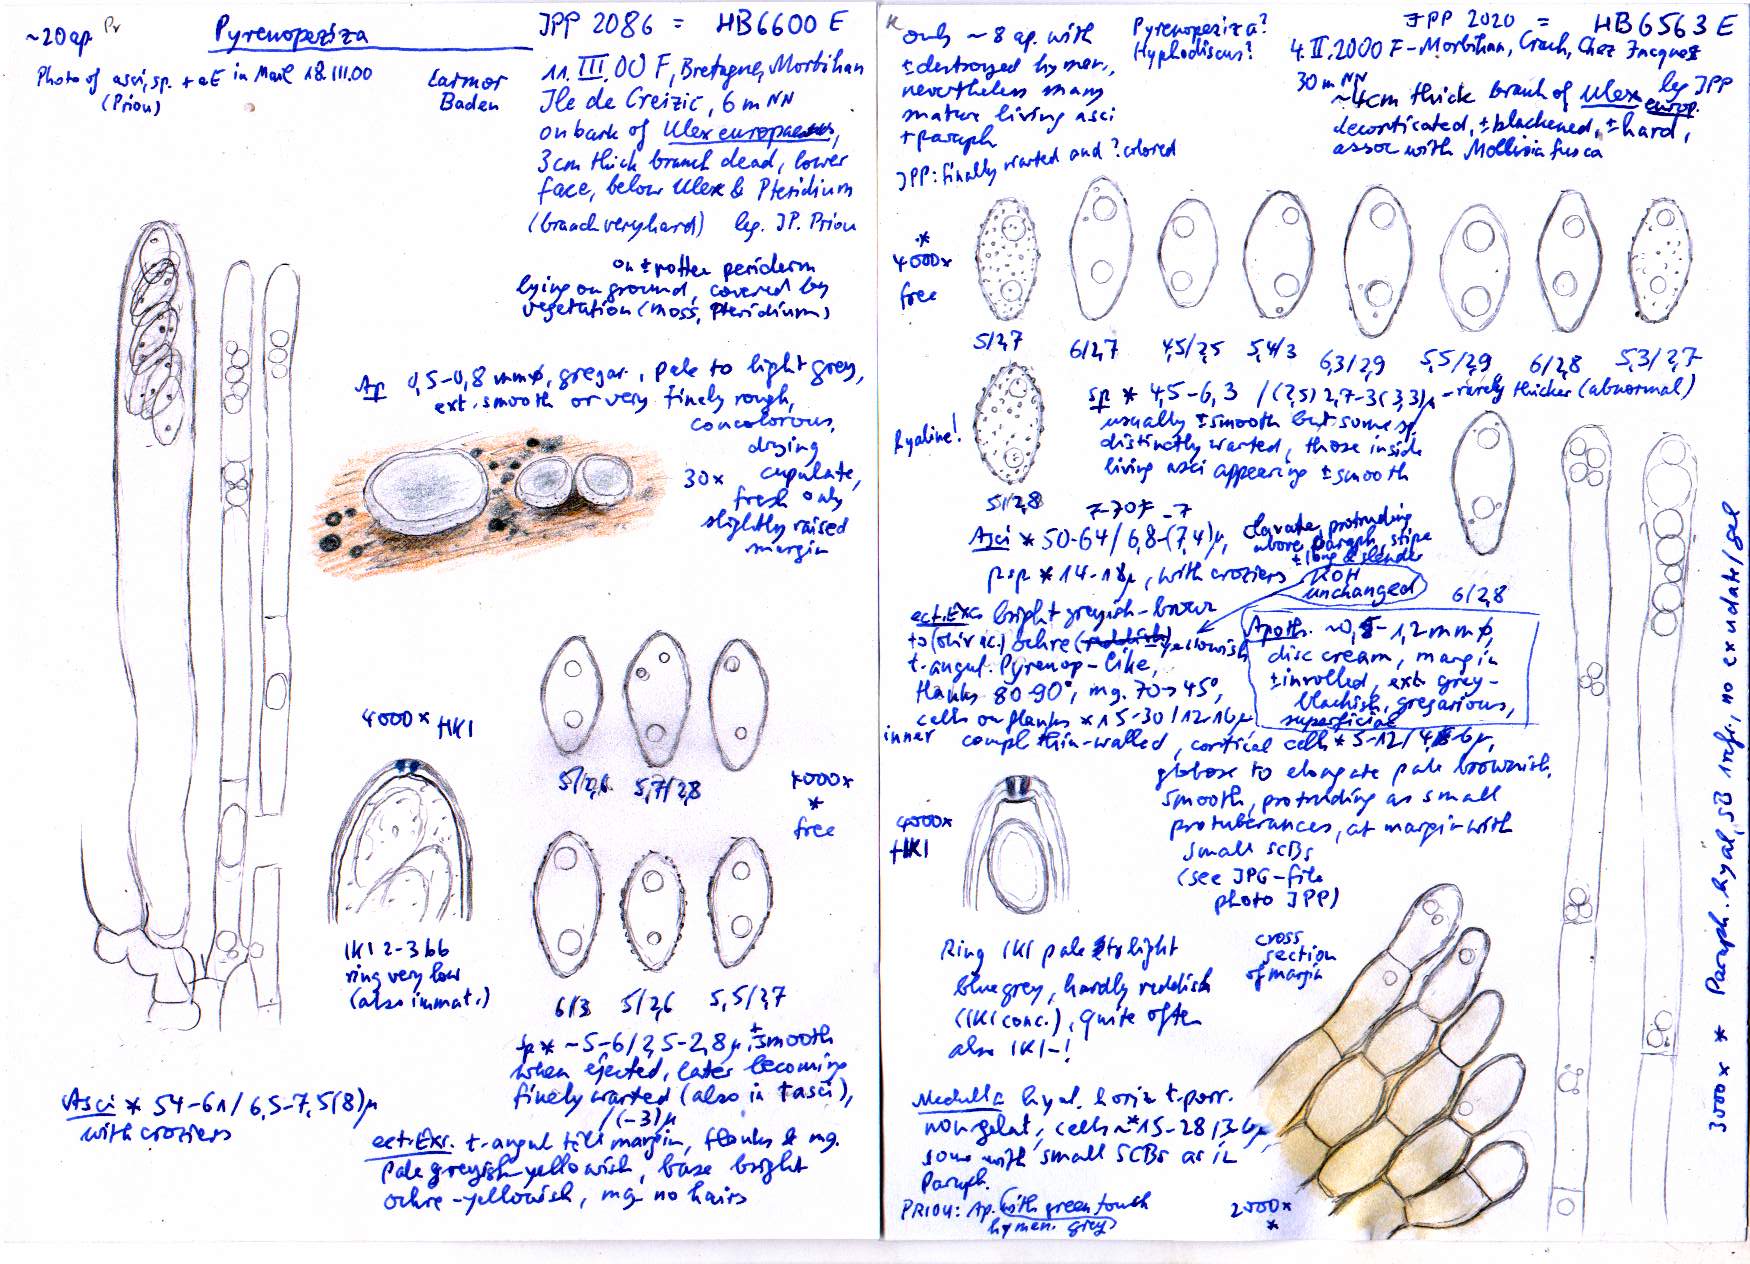 ~20 ap. Pr
Pyrenopeziza
JPP 2086 = HB 6600 E
Photo of asci, sp. + aE in Mail 18.III.00
(Priou)
Larmor
Baden
11. III. 00 F, Bretagne, Morbihan
Ile de Creizic, 6 m NN
on bark of Ulex europaeus,
3 cm thick branch dead, lower
face, below Ulex & Pteridium
(branch very hard) leg. J.P. Priou
on ± rotten periderm
lying on ground, covered by
vegetation (moss, Pteridium)
Ap 0,5-0,8 mm ø, gregar., pale to light grey,
ext. smooth or very finely rough,
concolorous,
drying
cupulate,
fresh only
slightly raised
margin
30x
4000x +IKI
IKI 2-3 bb
ring very low
(also immat.)
5/2,6 5,7/2,8
4000x
*
free
6/3 5/2,6 5,5/2,7
sp * ~5-6/2,5-2,8µ, ± smooth
when ejected, later becoming
finely warted (also in † asci),
/(-3)µ
Asci * 54-61/6,5-7,5(8)µ
with croziers
ect.Exc. t.angul till margin, flanks & mg.
pale greyish-yellowish, base bright
ochre-yellowish, mg no hairs
only ~8 ap. with
± destroyed hymen.,
nevertheless many
mature living asci
+ paraph
JPP: finally warted and ? colored
Pyrenopeziza?
Hyphodiscus?
JPP 2020 = HB 6563 E
4.II.2000 F-Morbihan, Crach, Chez Jacques
30 m NN leg JPP
~4cm thick branch of Ulex europ.
decorticated, ± blackened, ± hard,
assoc with Mollisia fusca
*
4000x
free
5/2,7 6/2,7 4,5/2,5 5,4/3 6,3/2,9 5,5/2,9 6/2,8 5,3/2,7
hyaline!
5/2,8
sp * 4,5-6,3 /(2,5) 2,7-3(3,3)µ - rarely thicker (abnormal)
usually ± smooth but some sp
distinctly warted, those inside
living asci appearing ± smooth
6/2,8
Asci * 50-64/6,8-(7,4)µ, clavate, protruding
above paraph, stipe
± long & slender
psp * 14-18µ, with croziers
KOH
unchanged
ect.Exc bright greyish-brown
to (olivac.) ochre (reddish) -yellowish
t.angul. Pyrenop-like,
flanks 80-90°, mg. 70→45°,
cells on flanks * 15-30/12-16µ
inner compl thin-walled, cortical cells * 5-12/4,5-6µ,
globose to elongate pale brownish,
smooth, protruding as small
protuberances, at margin with
small SCBs
(see JPG-file
photo JPP)
Apoth. ~0,5-1,2 mm ø,
disc cream, margin
± inrolled, ext. grey-
blackish, gregarious,
superficial
4000x
+IKI
Ring IKI pale to light
bluegrey, hardly reddish
(IKI conc.), quite often
also IKI-!
cross
section
of margin
Medulla hyal. horiz t.porr.
non gelat, cells ~*15-28/3-6µ,
some with small SCBs as in
Paraph.
PRIOU: Ap. with green touch
hymen. grey
2000x
*
3000x * Paraph. hyal, SB infi, no exudate/gel